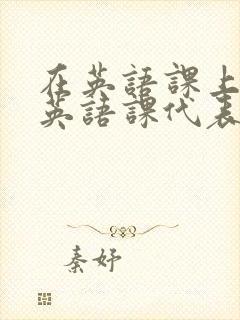 在英語課上
英語課代表
秦妤